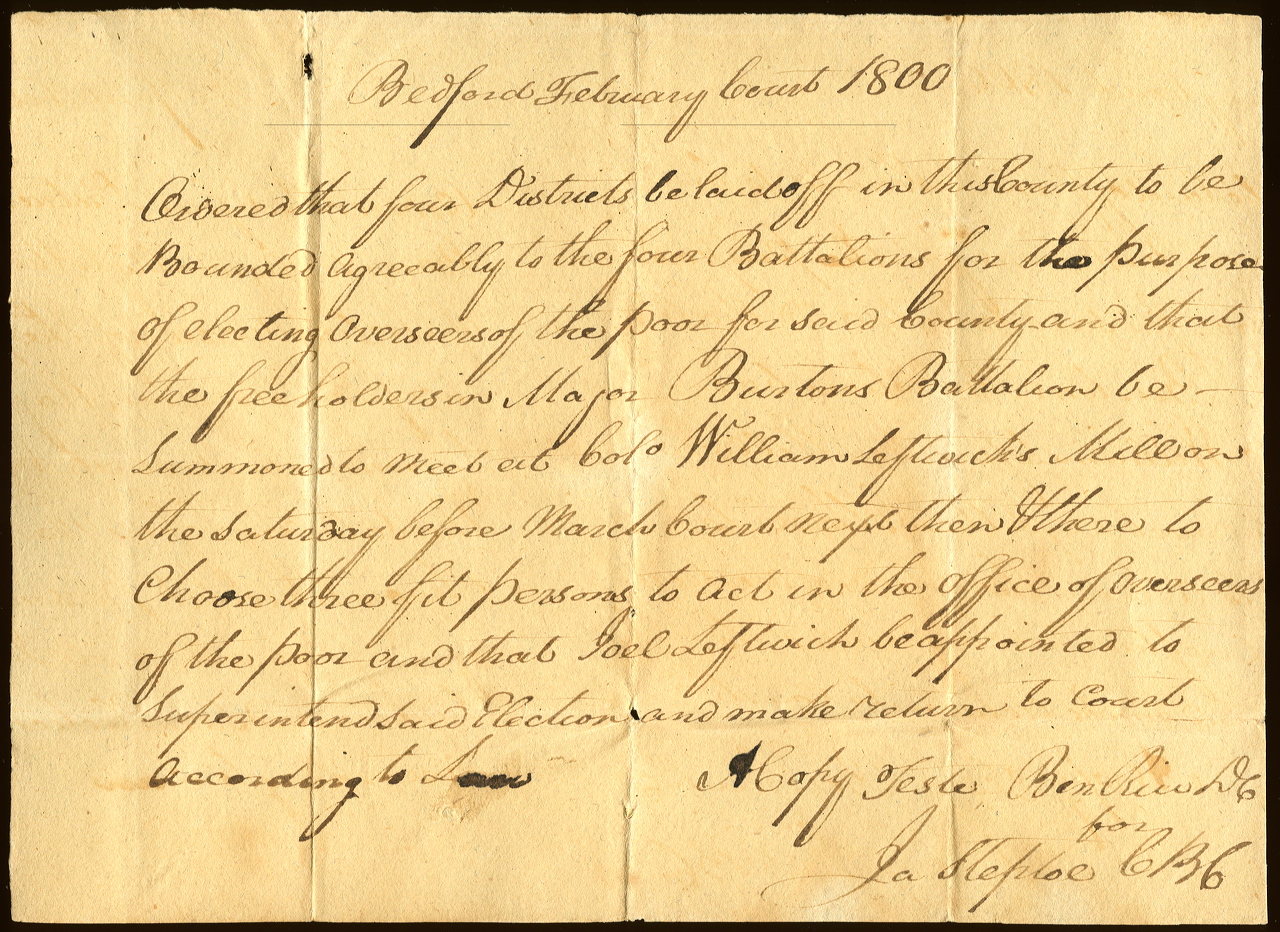 Bedford February Court 1800
Ordered that four Districts be laid off in this County to be
Bounded agreeably to the four Battalions for the purpose
of electing Overseers of the poor for said County and that
the freeholders in Major Burtons Battalion be —
Summoned to meet at Colo William Leftwich's Mill on
the Saturday before March Court next then & there to
Choose three fit persons to act in the office of overseers
of the poor and that Joel Leftwich be appointed to
Superintend said Election and make return to Court
According to Law
A Copy Teste Ben Rice DC
for
Ja Steptoe CBC